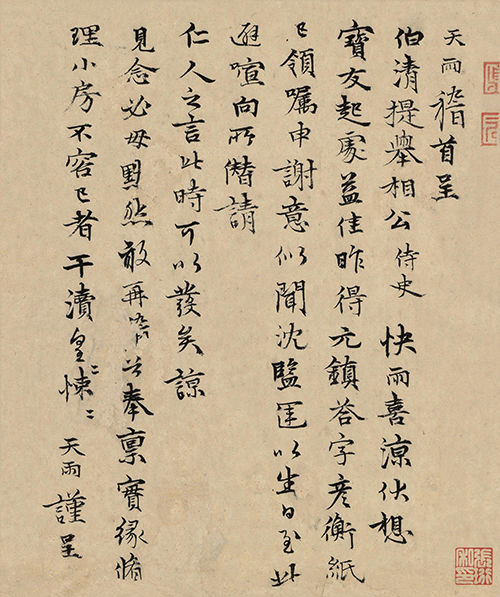 天雨稽首呈
伯清提舉相公侍史 快雨喜涼伏想
寶友起處益佳昨得元鎮荅字彥衡紙
已領囑申謝意似聞沈監運以生日至此
避喧向所僭請
仁人之言此時可以發矣諒
見念必毋默然敢再 奉禀寶緣脩
理小房不容已者干瀆皇〻悚〻 天雨謹呈
張珩私印